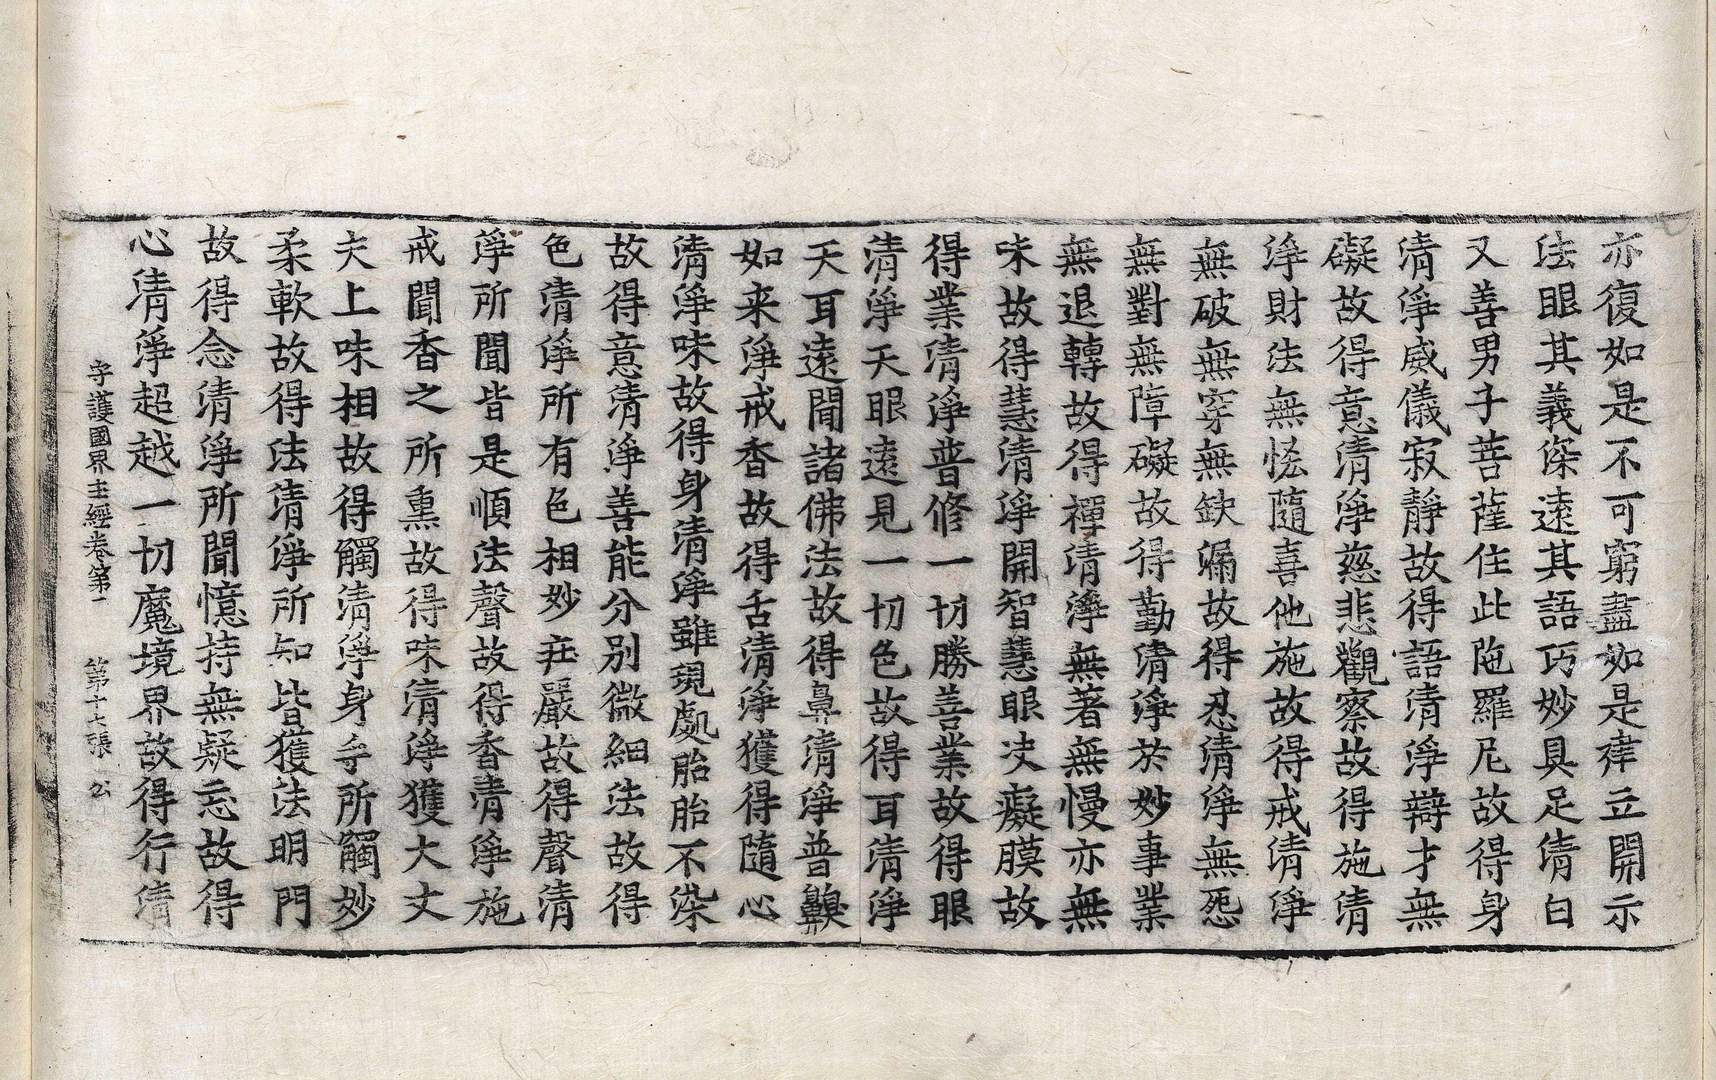 亦復如是不可窮盡如是建立開示
法眼其義深遠其語巧妙具足清白
又善男子菩薩住此陁羅尼故得身
清淨威儀寂靜故得語清淨辯才無
礙故得意清淨慈悲觀察故得施清
淨財法無恡隨喜他施故得戒清淨
無破無穿無缺漏故得忍清淨無恐
無對無障礙故得勤清淨於妙事業
無退轉故得禪清淨無著無慢亦無
味故得慧清淨開智慧眼決癡膜故
得業清淨普修一切勝善業故得眼
清淨天眼遠見一切色故得耳清淨
天耳遠聞諸佛法故得鼻清淨普齅
如来淨戒香故得舌清淨獲得隨心
清淨味故得身清淨雖現處胎胎不染
故得意清淨善能分別微細法故得
色清淨所有色相妙莊嚴故得聲清
淨所聞皆是順法聲故得香清淨施
戒聞香之所熏故得味清淨獲大丈
夫上味相故得觸清淨身手所觸妙
柔軟故得法清淨所知皆獲法明門
故得念清淨所聞憶持無疑忘故得
心清淨超越一切魔境界故得行清
守護國界主經卷第一　第十七張　公